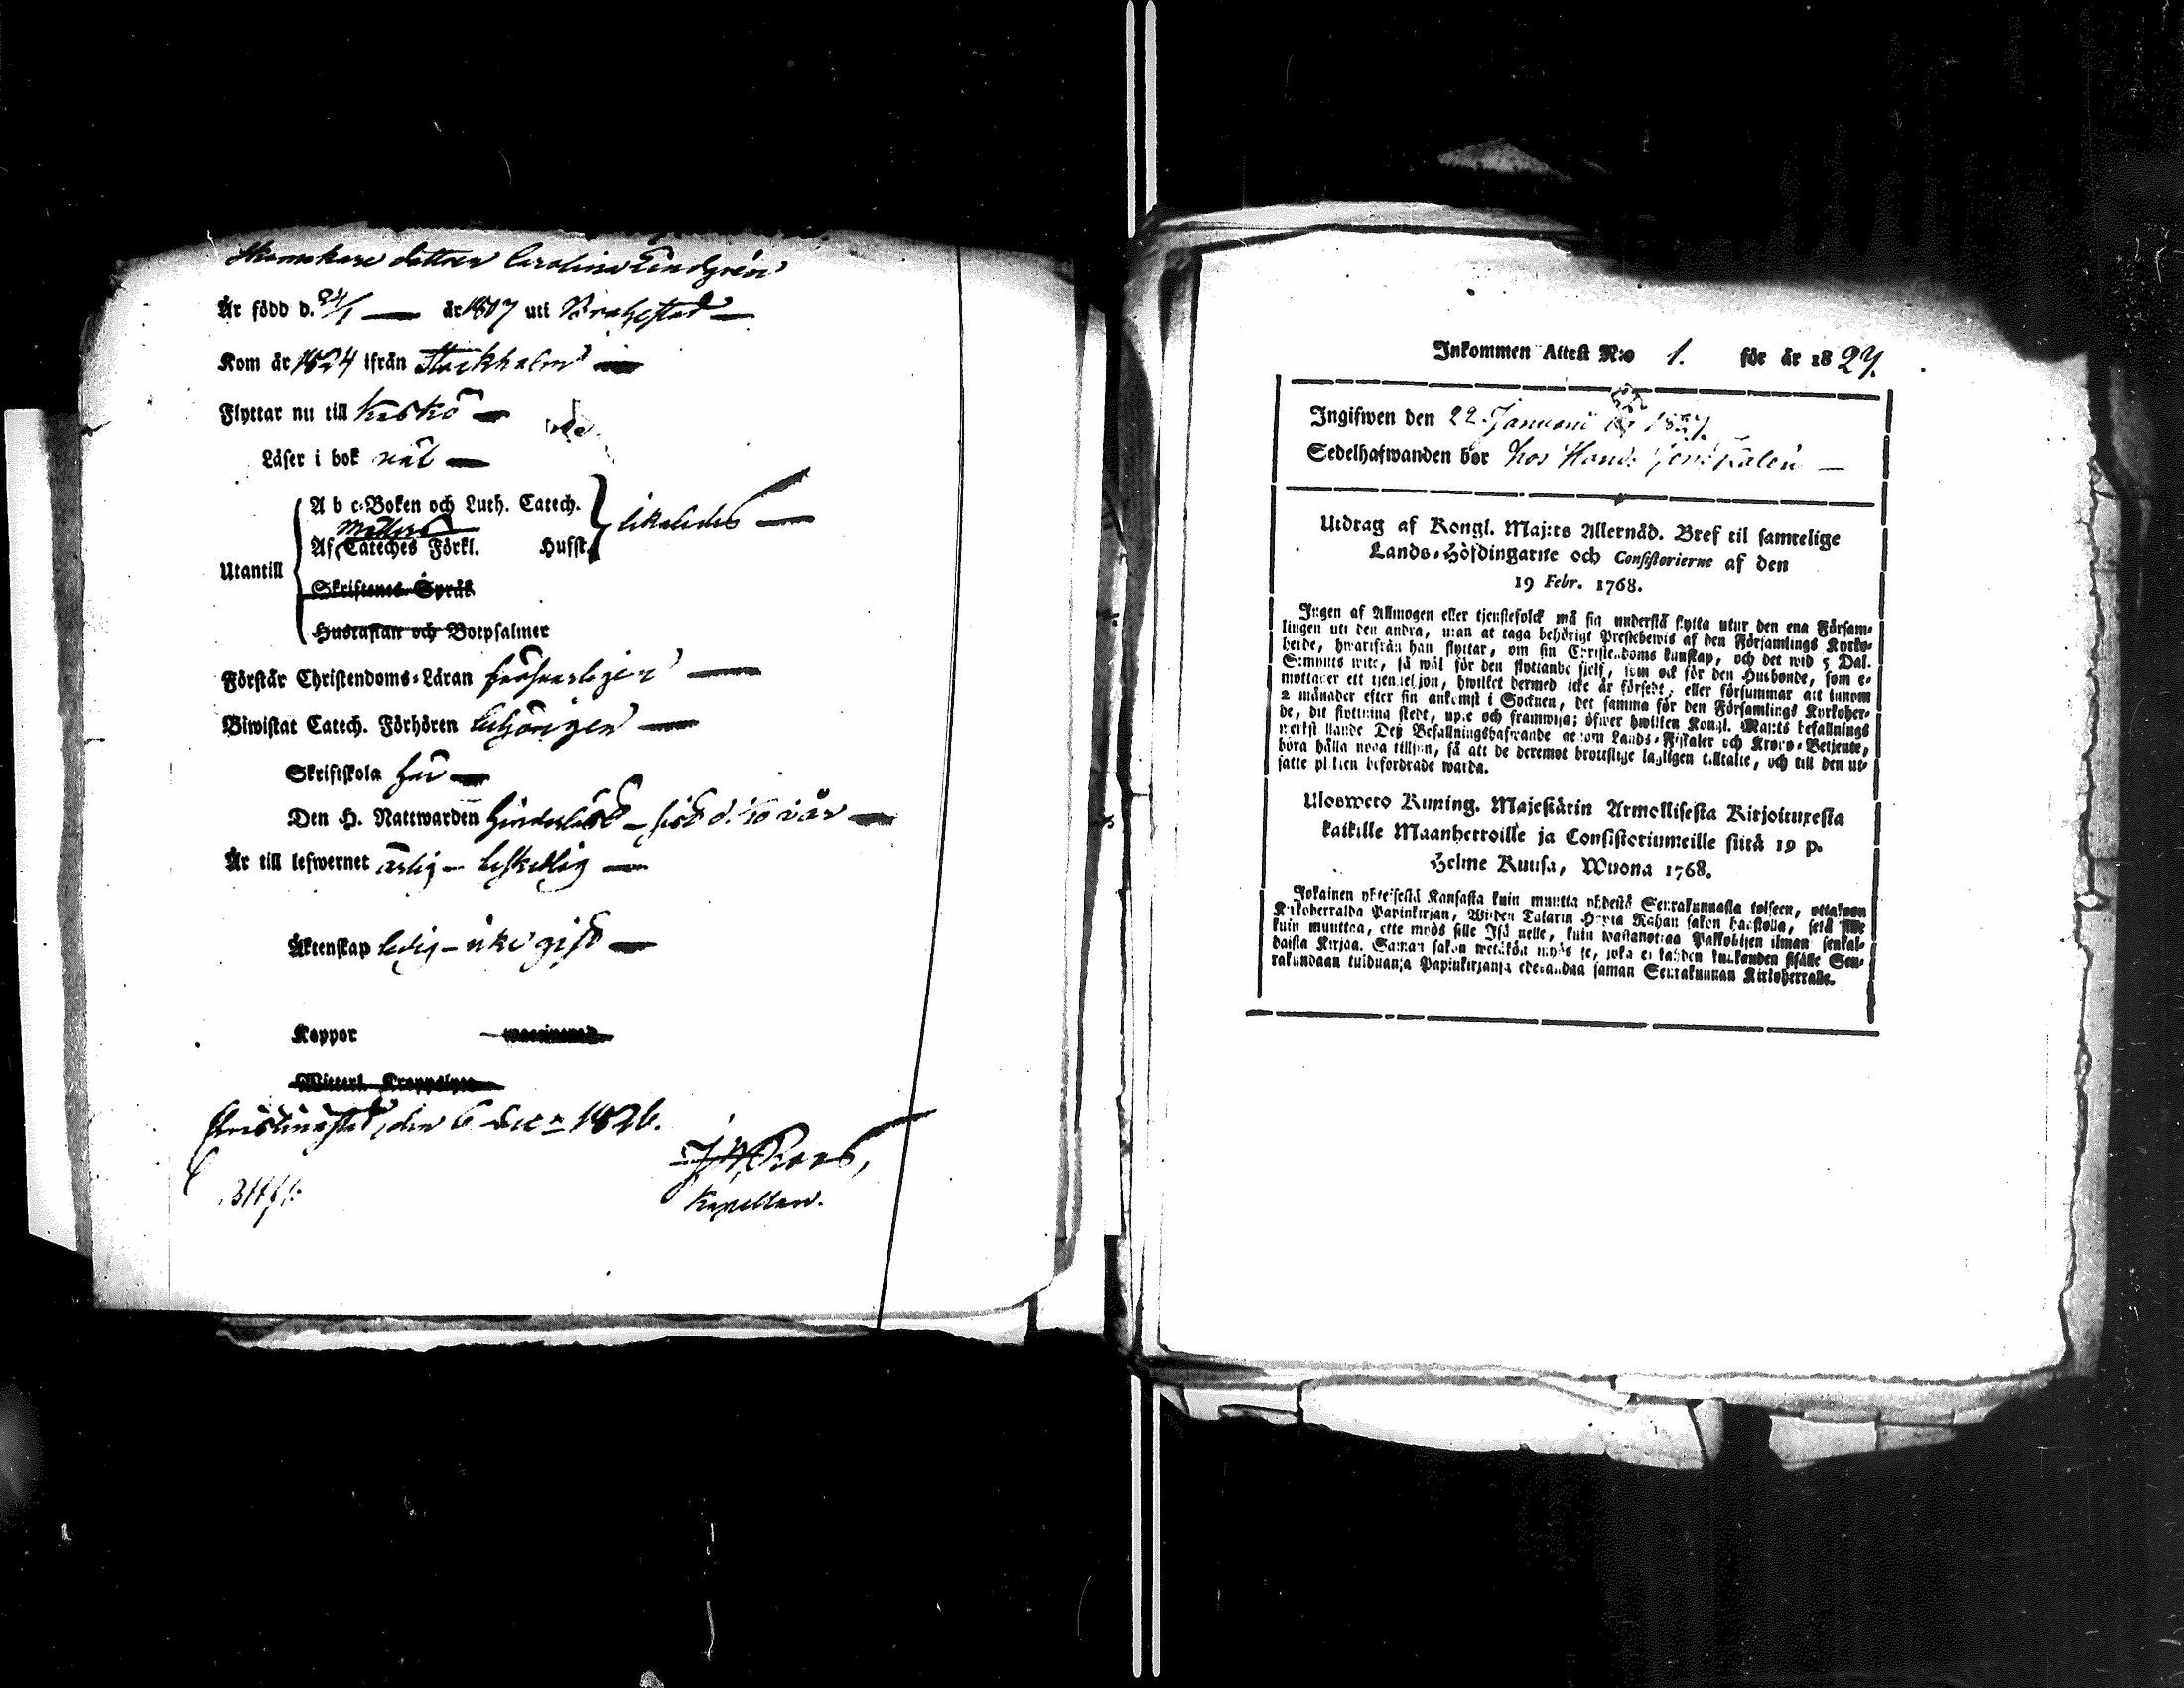 Skomakare dottren Carolina Lindgrén
Är född d. 24/1 — år 1807 uti Brahestad —
Kom år 1824 ifrån Stockholm —
Flyttar nu till Kaskö —
Läser i bok väl —
Utantill
A b c-Boken och Luth. Catech.
Af Cateches Förkl. Husst.
likaledes —
Skriftenes Språk
Hustaflan och Botpsalmer
Förstår Christendoms-Läran försvarligen —
Biwistat Catech. Förhören behörigen —
Skriftskola här —
Den H. Nattwarden
Är till lefwernet ärlig — beskedlig —
Äktenskap ledig — icke gift —
Koppor
Witterl. Kroppslyte
Christinestad, den 6 Dec. 1826.
Kapellan.
Inkommen Attest N:o 1. för år 1827.
Ingifwen den 22 Januarii 1827.
Sedelhafwanden bor hos
Utdrag af Kongl. Maj:ts Allernåd. Bref til samtelige
Lands-Höfdingarne och Consistorierne af den
19 Febr. 1768.
Ingen af Allmogen eller tjenstefolck må sig understå flytta utur den ena Försam-
lingen uti den andra, utan at taga behörigt Prestebewis af den Församlings Kyrko-
herde, hwarifrån han flyttar, om sin Christendoms kunskap, och det wid 5 Dal.
S:mynts wite, så wäl för den flyttande sjelf, som ock för den Husbonde, som e-
mottager ett tjenstehjon, hwilket dermed icke är försedt, eller försummar att innom
2 månader efter sin ankomst i Socknen, det samma för den Församlings Kyrkoher-
de, dit flyttning skedt, upte och framwisa; öfwer hwilken Kongl. Maj:ts befallnings
werkställande Deß Befallningshafwande genom Lands-Fiskaler och Krono-Betjente,
böra hålla noga tillsyn, så att de deremot brottslige lagligen tilltalte, och till den ut-
satte plikten befordrade warda.
Ulosweto Kuning. Majestätin Armollisesta Kirjoituxesta
kaikille Maanherroille ja Consistoriumeille siitä 19 p.
Helme Kuusa, Wuona 1768.
Jokainen yhteisestä Kansasta kuin muutta yhdestä Seurakunnasta toiseen, ottakoon
Kirkoherralda Papinkirjan, Wijden Talarin Hopia Rahan sakon haastolla, sekä sille
kuin muuttaa, ette myös sille Isännelle, kuin wastanottaa Palkollisen ilman senkal-
daista Kirjaa. Saman sakon wetäkön myös se, joka ei kahden kuukauden sisälle Seu-
rakundaan tulduansa Papinkirjansa edesandaa saman Seurakunnan Kirkoherralle.